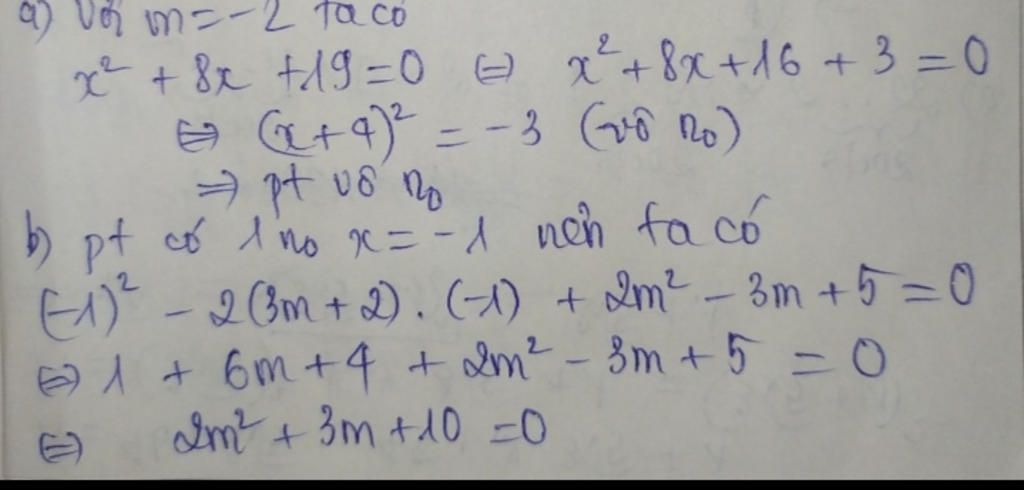 a) Với m = -2 ta có
x² + 8x + 19 = 0 ⇔ x² + 8x + 16 + 3 = 0
⇔ (x + 4)² = -3 (vô n₀)
⇒ pt vô n₀
b) pt có 1 n₀ x = -1 nên ta có
(-1)² - 2(3m + 2). (-1) + 2m² - 3m + 5 = 0
⇔ 1 + 6m + 4 + 2m² - 3m + 5 = 0
⇔ 2m² + 3m + 10 = 0